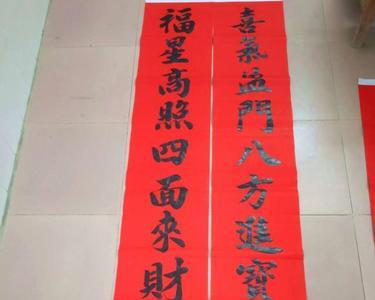 喜氣盈門八方進寳
福星高照四面來財